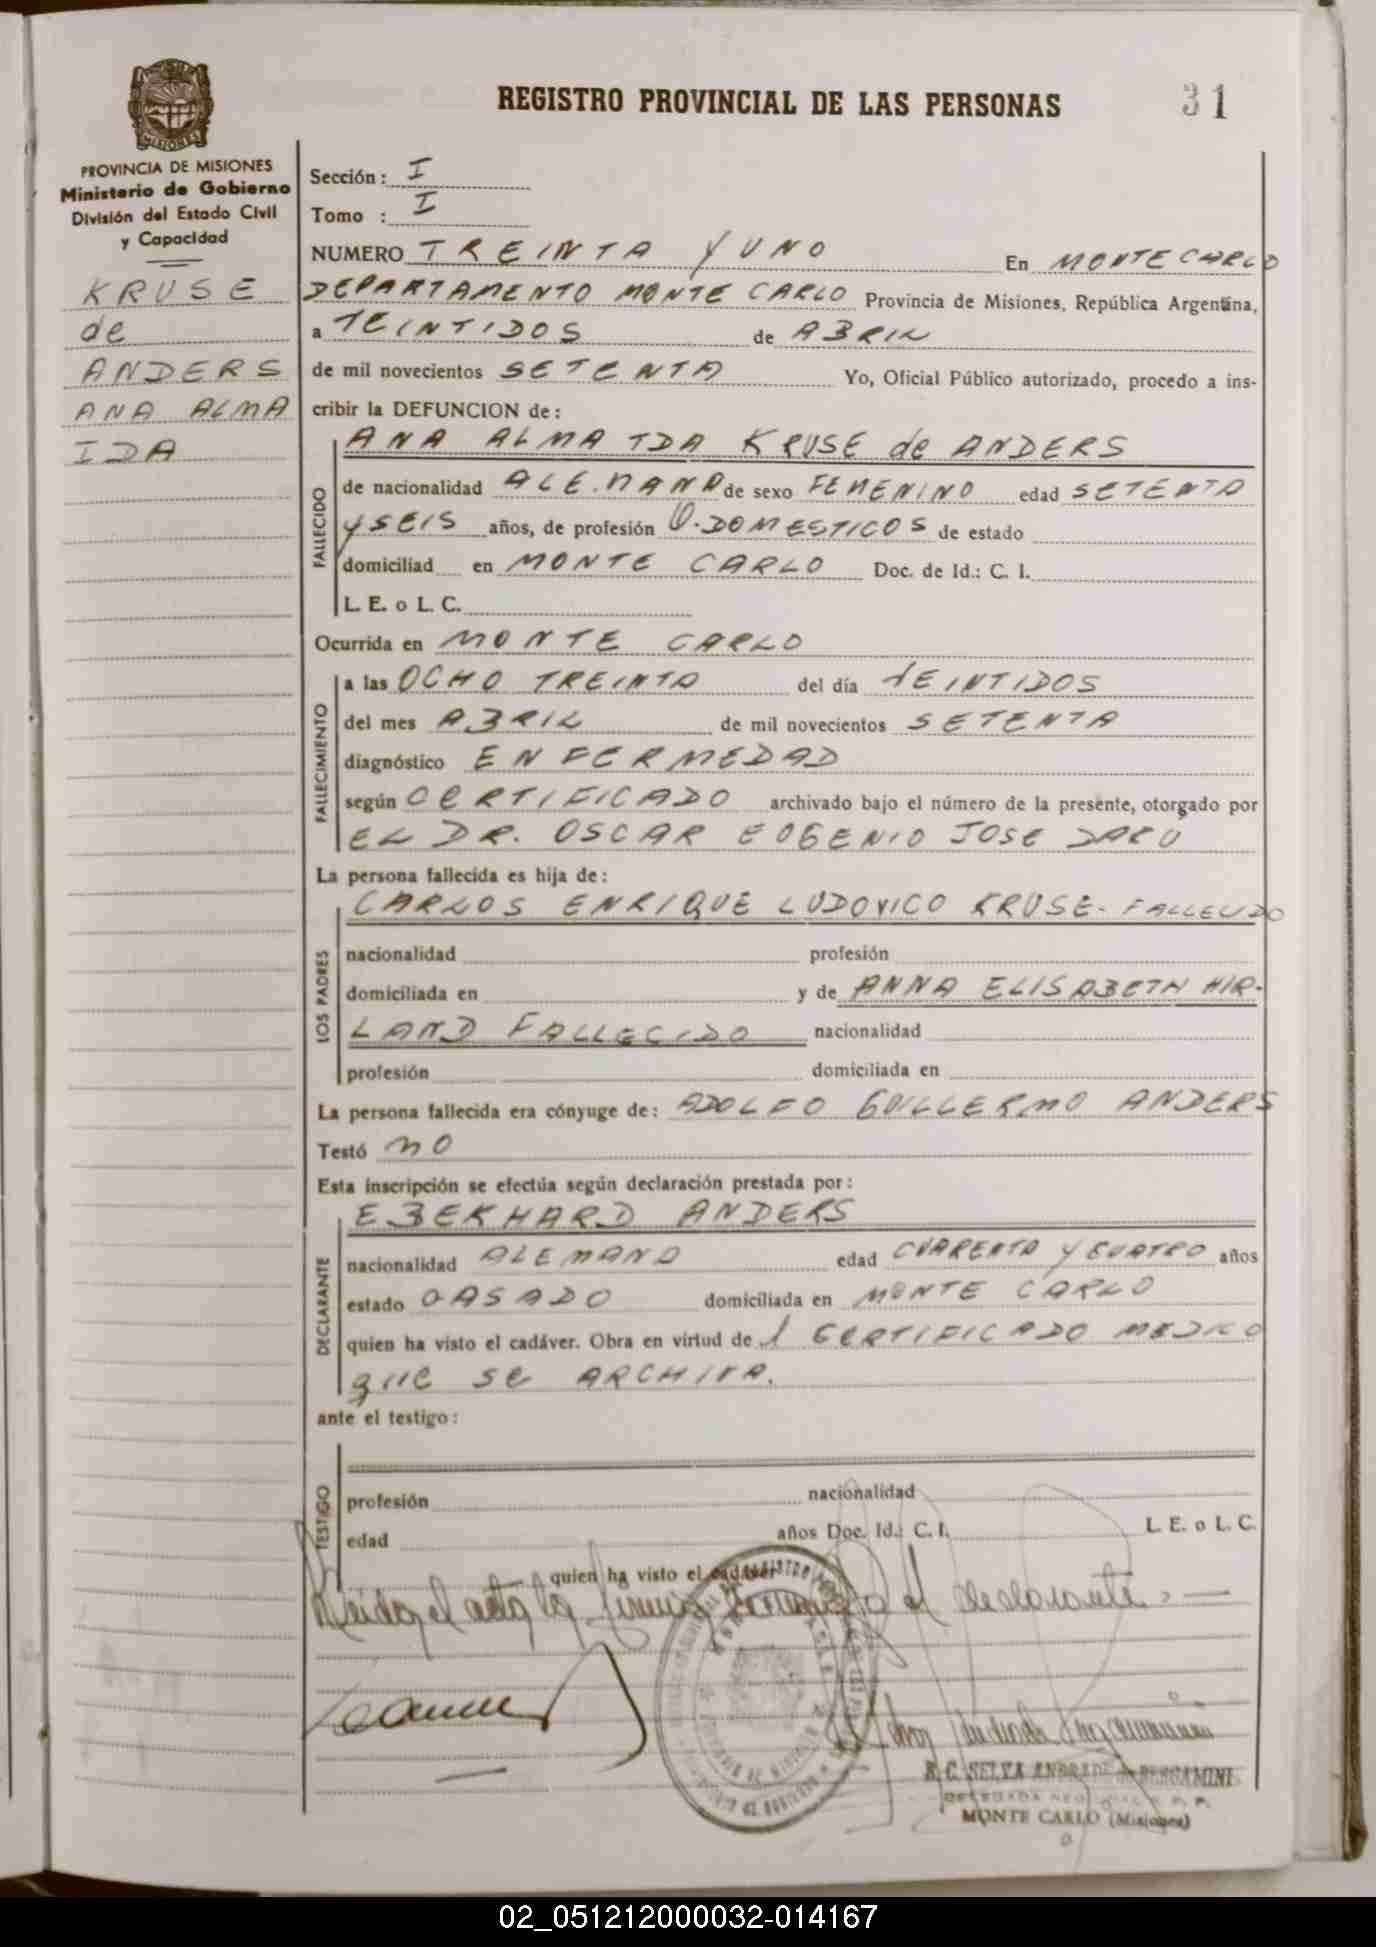 REGISTRO PROVINCIAL DE LAS PERSONAS
31
MISIONES
PROVINCIA DE MISIONES
Ministerio de Gobierno
División del Estado Civil
y Capacidad
KRUSE
de
ANDERS
ANA ALMA
IDA
Sección: I
Tomo : I
NUMERO TREINTA Y UNO En MONTE CARLO
DEPARTAMENTO MONTE CARLO Provincia de Misiones, República Argentina,
a VEINTIDOS de ABRIL
de mil novecientos SETENTA Yo, Oficial Público autorizado, procedo a ins-
cribir la DEFUNCION de:
ANA ALMA IDA KRUSE de ANDERS
FALLECIDO
de nacionalidad ALEMANA de sexo FEMENINO edad SETENTA
y SEIS años, de profesión Q. DOMESTICOS de estado
domiciliad en MONTE CARLO Doc. de Id.: C. I.
L. E. o L. C.
Ocurrida en MONTE CARLO
FALLECIMIENTO
a las OCHO TREINTA del día VEINTIDOS
del mes ABRIL de mil novecientos SETENTA
diagnóstico ENFERMEDAD
según CERTIFICADO archivado bajo el número de la presente, otorgado por
EL DR. OSCAR EUGENIO JOSE DARU
La persona fallecida es hija de:
LOS PADRES
CARLOS ENRIQUE LUDOVICO KRUSE - FALLECIDO
nacionalidad profesión
domiciliada en y de ANNA ELISABETH HIR-
LAND FALLECIDO nacionalidad
profesión domiciliada en
La persona fallecida era cónyuge de: ADOLFO GUILLERMO ANDERS
Testó NO
Esta inscripción se efectúa según declaración prestada por:
DECLARANTE
EBERHARD ANDERS
nacionalidad ALEMANA edad CUARENTA Y CUATRO años
estado CASADO domiciliada en MONTE CARLO
quien ha visto el cadáver. Obra en virtud de 1 CERTIFICADO MEDICO
que se ARCHIVA.
ante el testigo:
TESTIGO
profesión nacionalidad
edad años Doc. Id.: C. I. L. E. o L. C.
quien ha visto el cadáver
Leída el acta la firma conmigo el declarante. —
SELVA ANDRADE de BERGAMINI
MONTE CARLO (Misiones)
02_051212000032-014167